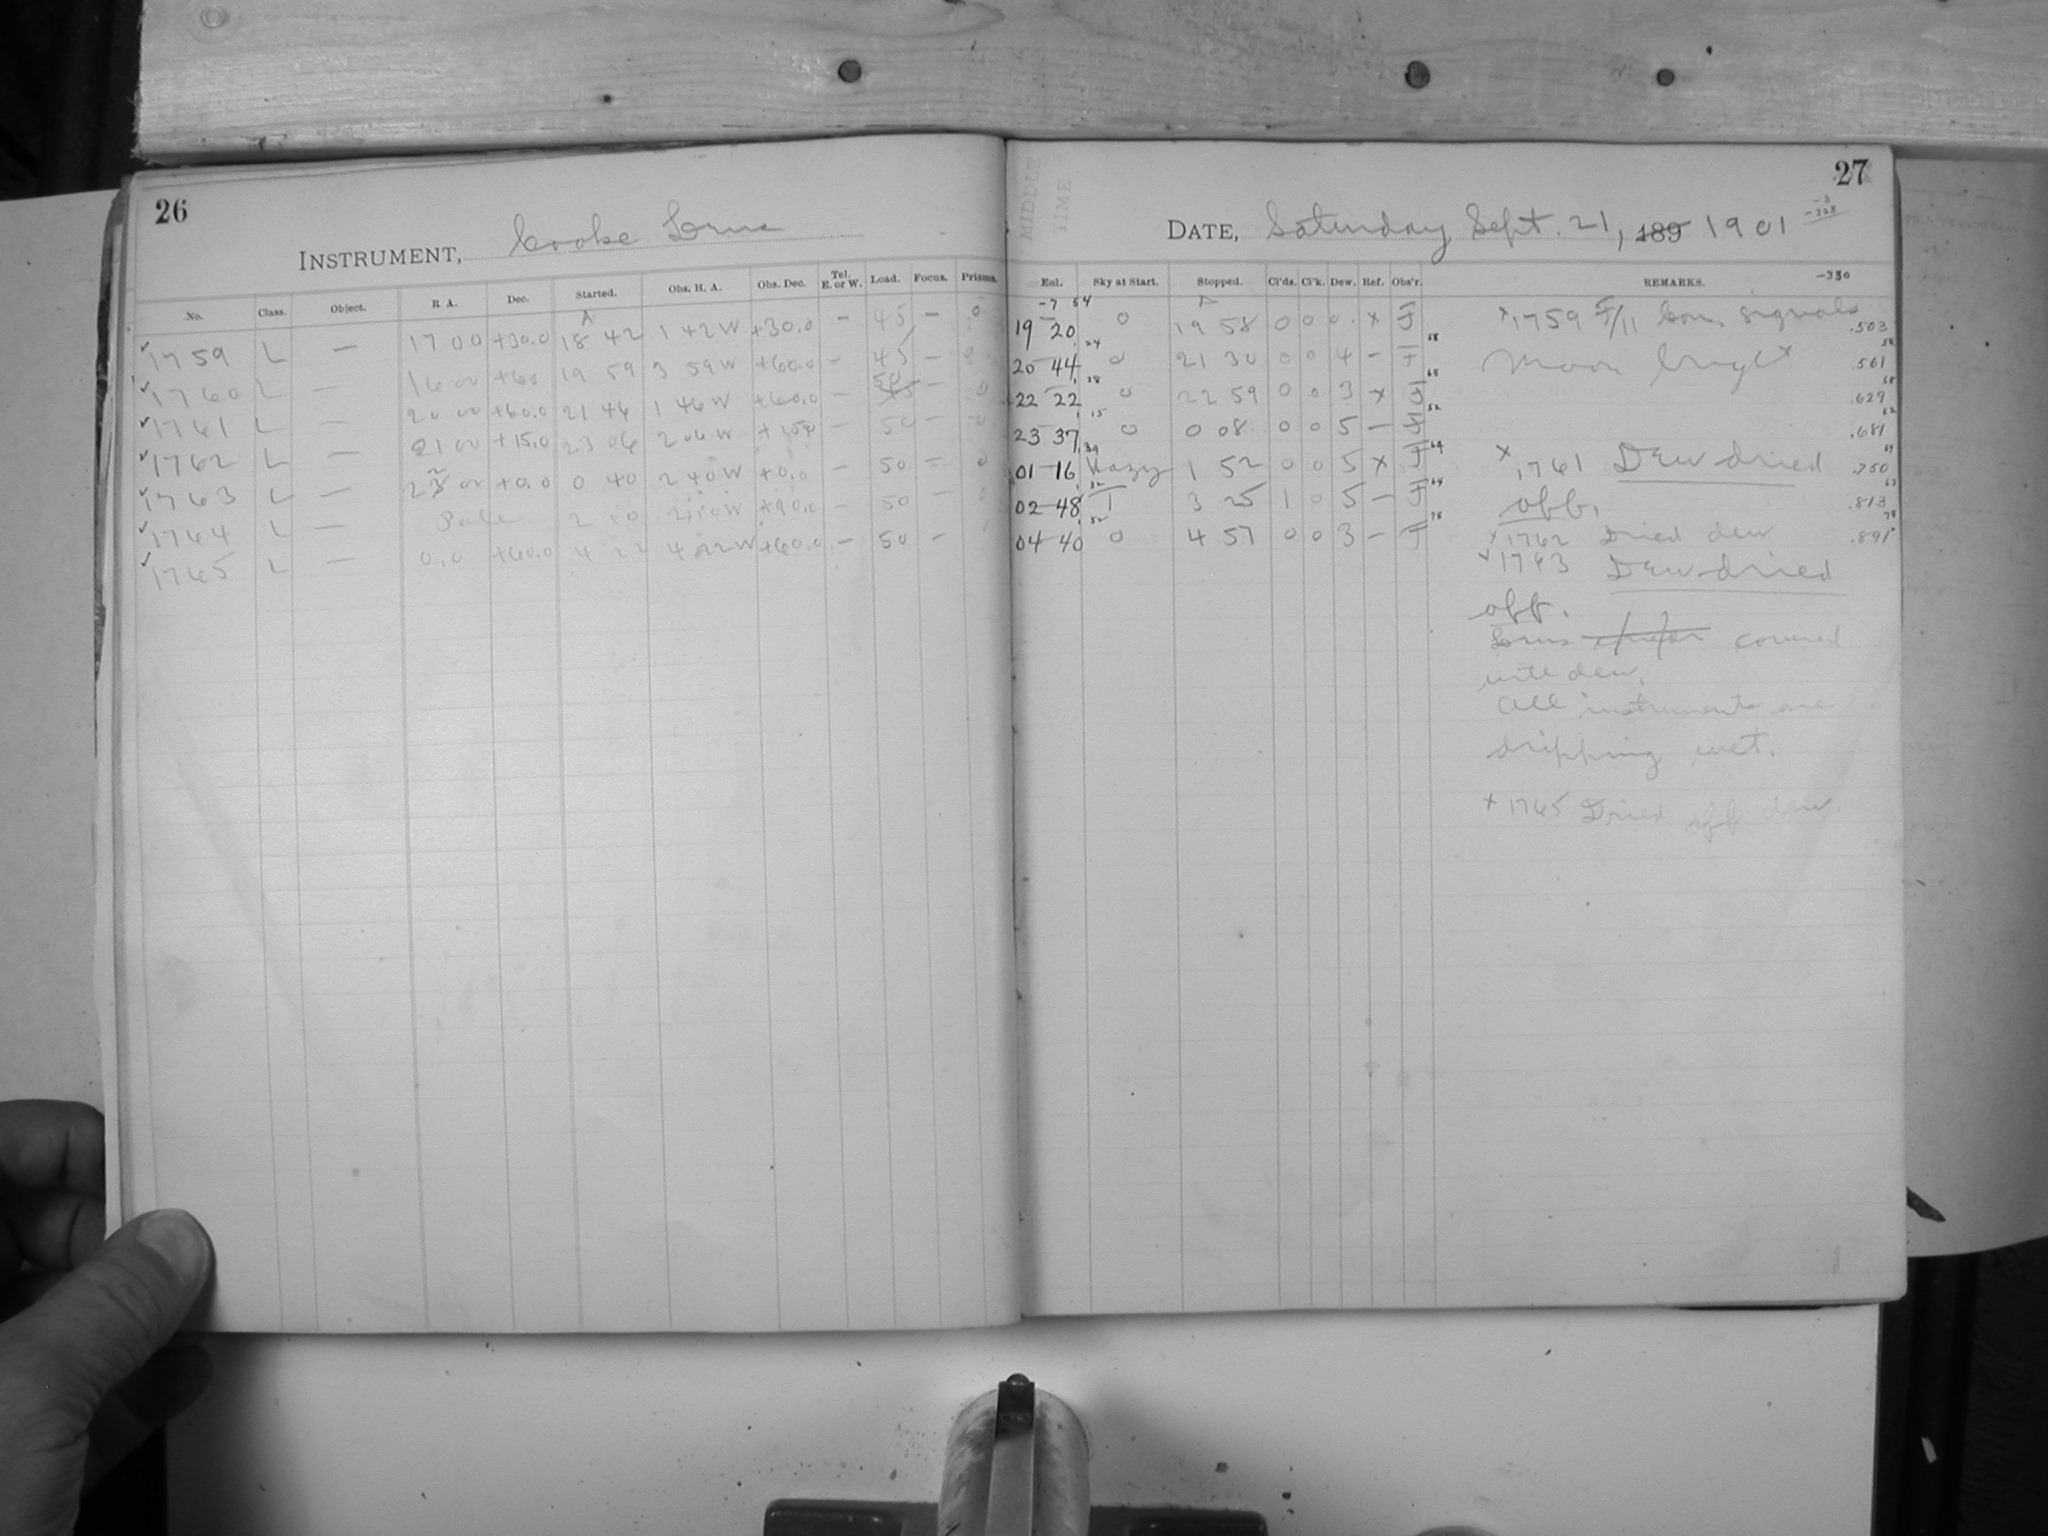 26
INSTRUMENT, Cooke Lens
No. Class. Object. R. A. Dec. Started. Obs. H. A. Obs. Dec. Tel. E. or W. Load. Focus. Prisms.
1759 L — 17 00 +30.0 18 42 1 42 W +30.0 — 45 — 0
1760 L — 16 00 +60 19 59 3 59 W +60.0 — 45 — 0
1761 L — 20 00 +60.0 21 46 1 46 W +60.0 — 50 — 0
1762 L — 21 00 +15.0 23 06 2 06 W +15.0 — 50 — 0
1763 L — 22 00 +0.0 0 40 2 40 W +0.0 — 50 — 0
1764 L — Pole 2 10 2 10 W +90.0 — 50 —
1765 L — 0.0 +60.0 4 22 4 22 W +60.0 — 50 —
27
MIDDLE
TIME
DATE, Saturday Sept. 21, 189 1901
-3
-328
-330
Enl. Sky at Start. Stopped. Cl'ds. Cl'k. Dew. Ref. Obs'r. REMARKS.
-7 54
19 20 0 19 58 0 0 0. x F
20 44 24 0 21 30 0 0 4 — F 58
22 22 38 0 22 59 0 0 3 x F 68
23 37 15 0 0 08 0 0 5 — F 52
01 16 39 Hazy 1 52 0 0 5 x F 69
02 48 32 T 3 25 1 0 5 — F 64
04 40 52 0 4 57 0 0 3 — F 78
x 1759 F/11 Com. signals .503
Moon bright .561
.629
.681
x 1761 Dew dried .750
off. .813
x 1762 Dried dew .891
x 1763 Dew dried
off.
Lens covered
with dew.
All instruments are
dripping wet.
x 1765 Dried off dew.